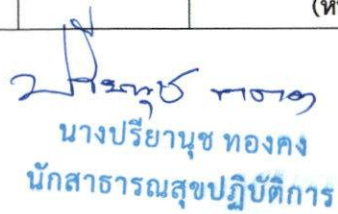 (ห
นางปรียานุช ทองคง
นักสาธารณสุขปฏิบัติการ